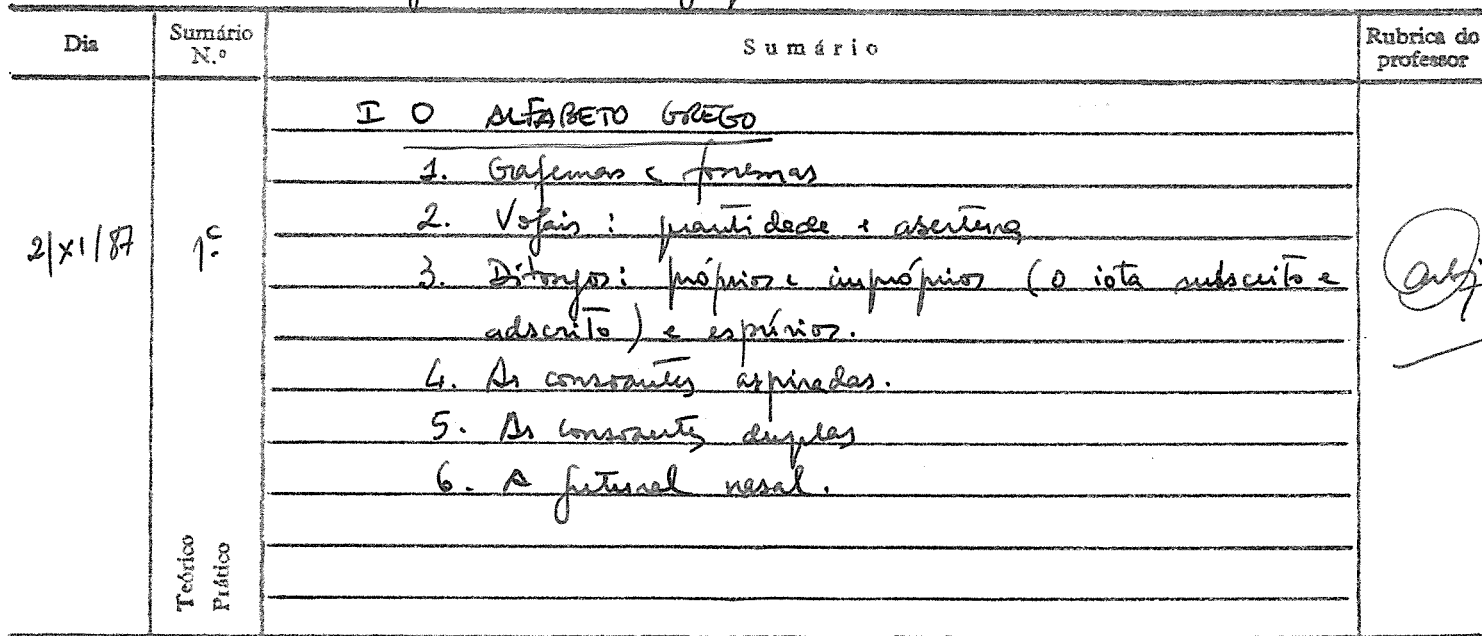 Dia
Sumário N.º
Sumário
Rubrica do professor
2/XI/87
1.º
I O ALFABETO GREGO
1. Grafemas e fonemas
2. Vogais: quantidade e abertura
3. Ditongos: próprios e impróprios (o iota subscrito e
adscrito) e espúrios.
4. As consoantes aspiradas.
5. As consoantes duplas
6. A gutural nasal.
Teórico
Prático